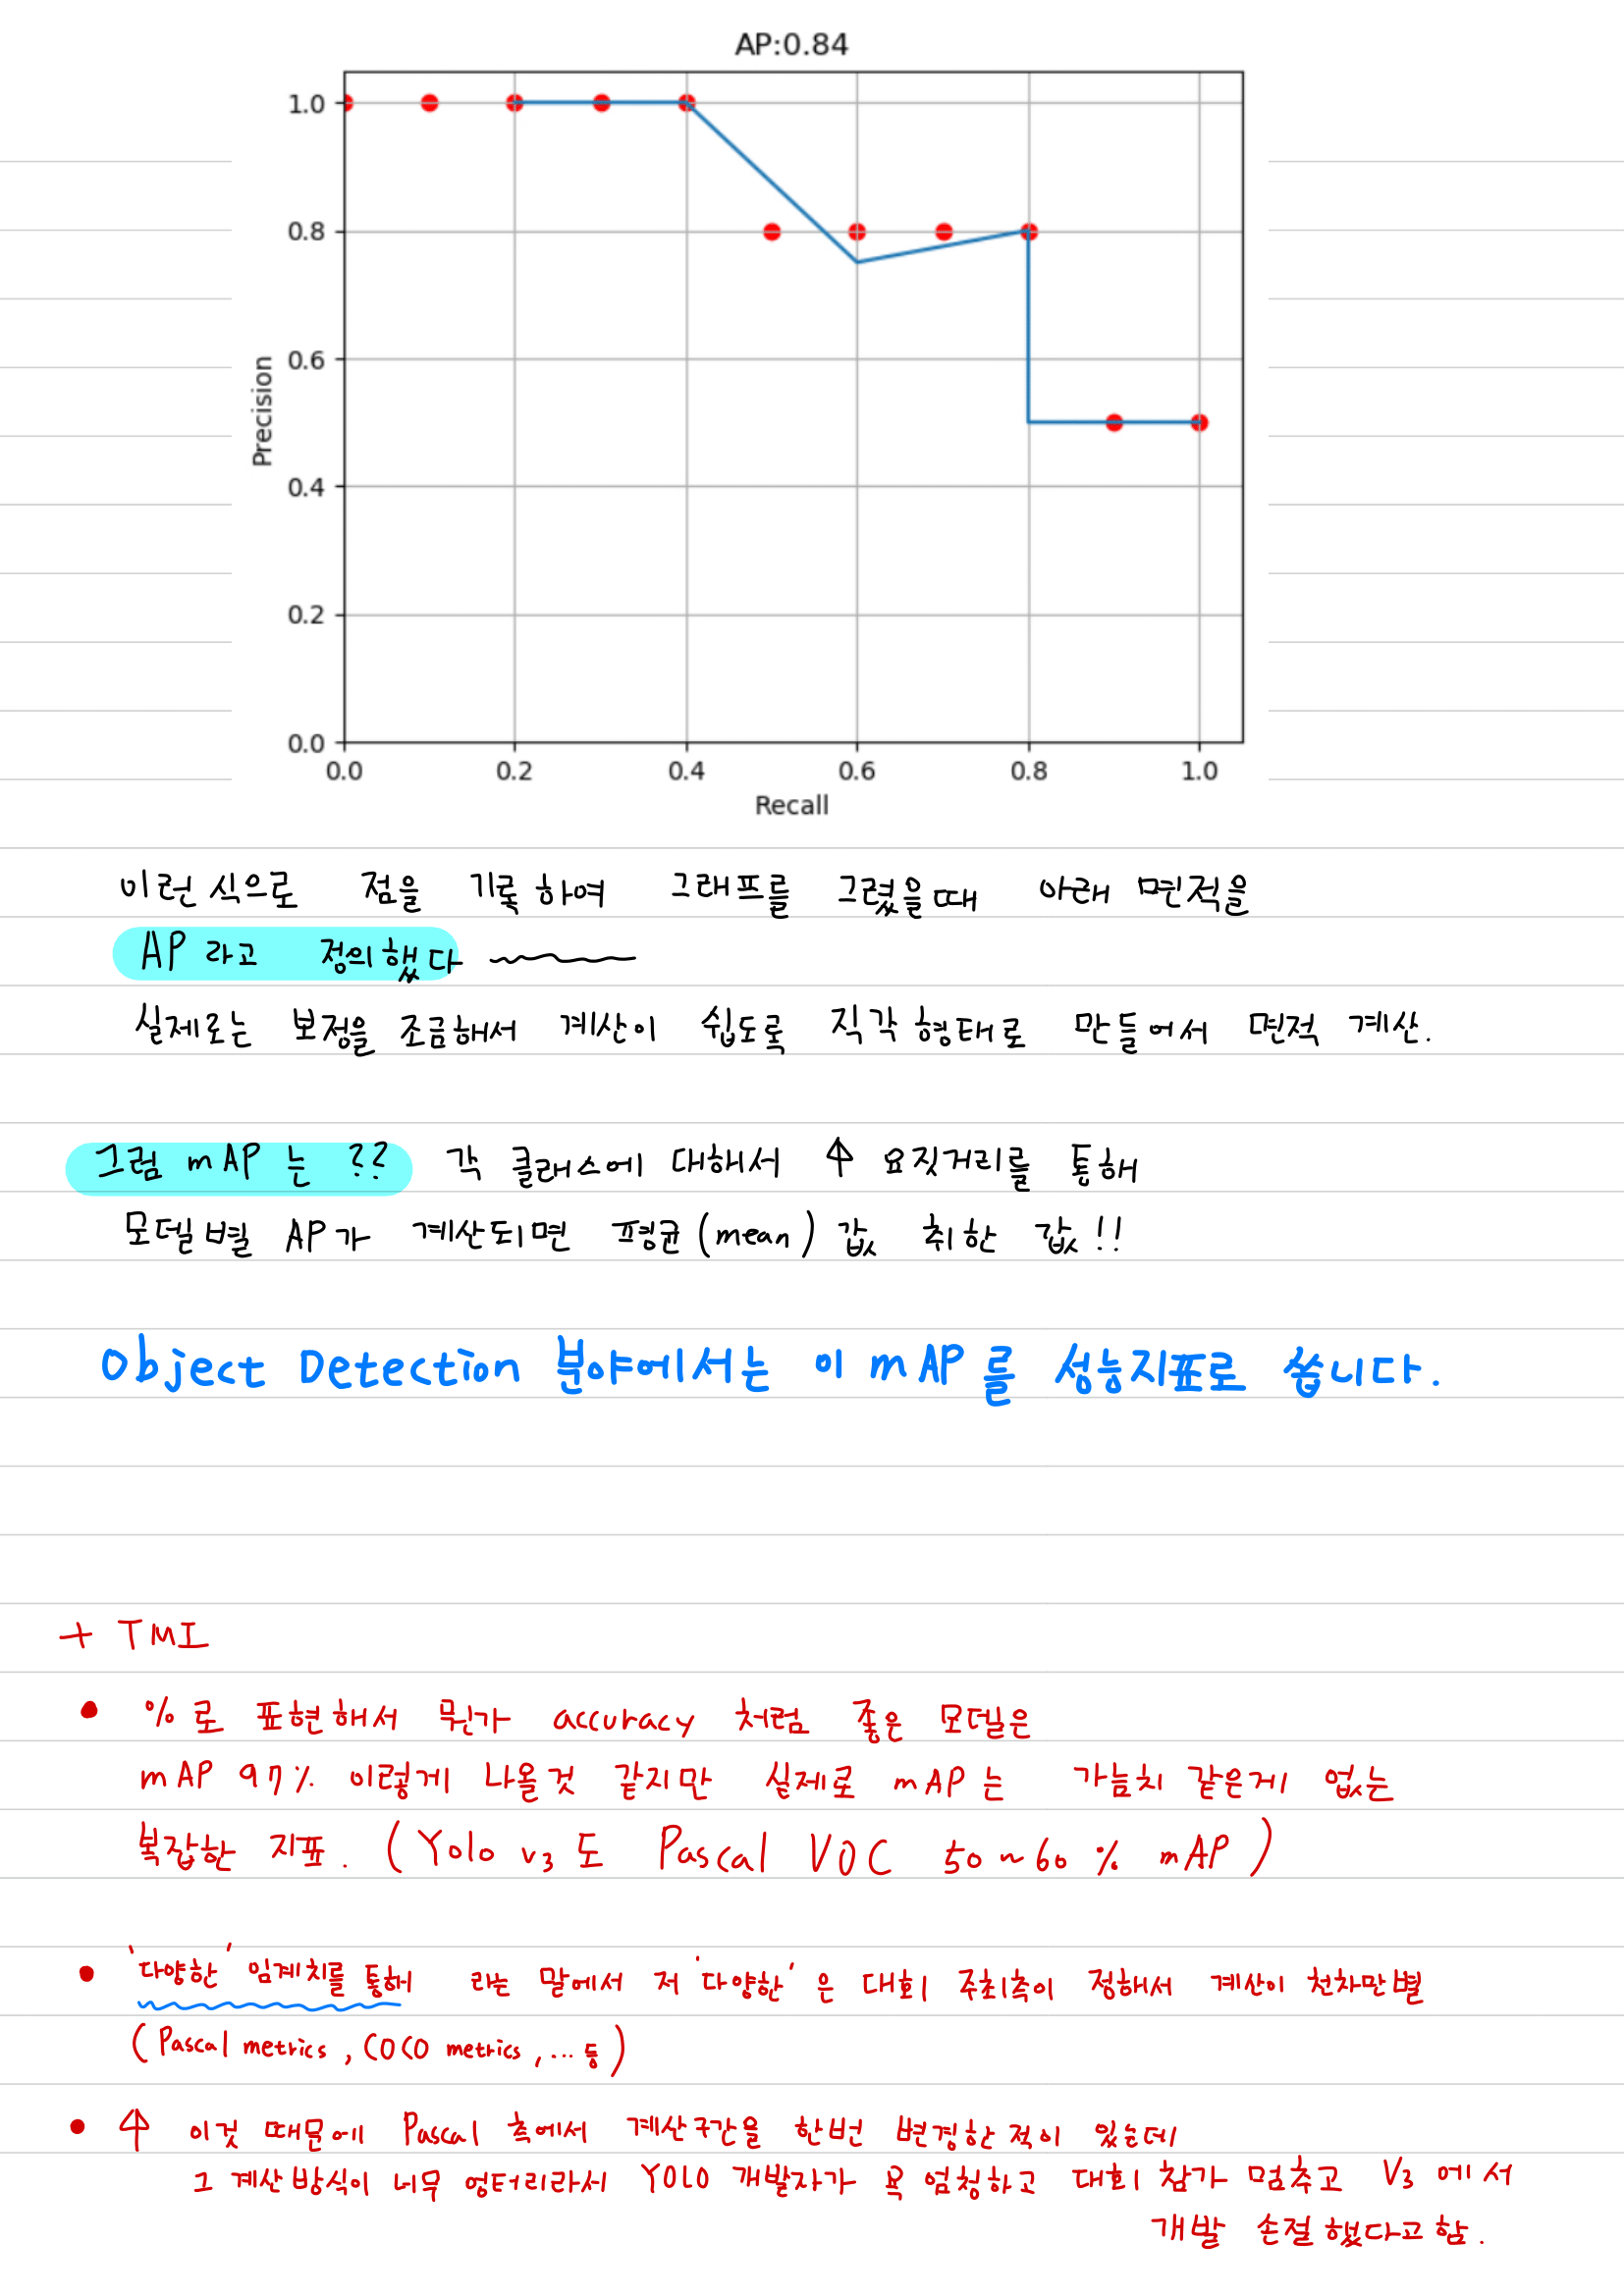 AP:0.84
1.0
0.8
0.6
0.4
0.2
0.0
Precision
0.0 0.2 0.4 0.6 0.8 1.0
Recall
이런 식으로 점을 기록하여 그래프를 그렸을때 아래 면적을
AP 라고 정의했다
실제로는 보정을 조금해서 계산이 쉽도록 직각형태로 만들어서 면적 계산.
그럼 mAP 는 ?? 각 클래스에 대해서 ↑ 요짓거리를 통해
모델별 AP가 계산되면 평균(mean) 값 취한 값!!
Object Detection 분야에서는 이 mAP를 성능지표로 씁니다.
+ TMI
• %로 표현해서 뭔가 accuracy 처럼 좋은 모델은
mAP 97% 이렇게 나올것 같지만 실제로 mAP는 가늠치 같은게 없는
복잡한 지표. (Yolo v3도 Pascal VOC 50~60% mAP)
• '다양한' 임계치를 통해 라는 말에서 저 '다양한'은 대회 주최측이 정해서 계산이 천차만별
(Pascal metrics, COCO metrics, ... 등)
• ↑ 이것 때문에 Pascal 측에서 계산구간을 한번 변경한적이 있는데
그 계산방식이 너무 엉터리라서 YOLO 개발자가 욕 엄청하고 대회 참가 멈추고 V3 에서
개발 손절했다고함.